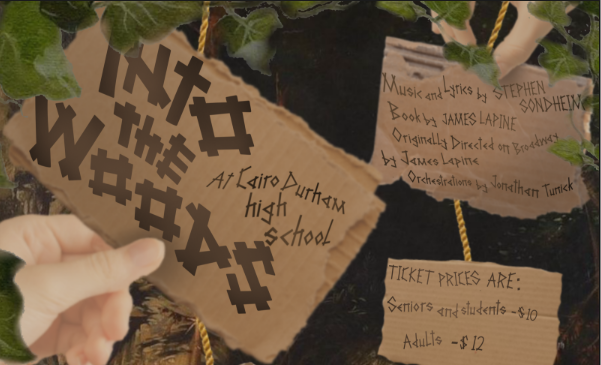 INTO
THE
WOODS
At Cairo Durham
high
school
Music and Lyrics by STEPHEN
SONDHEIM
Book by JAMES LAPINE
Originally Directed on Broadway
by James Lapine
Orchestrations by Jonathan Tunick
TICKET PRICES ARE:
Seniors and students -$10
Adults -$12